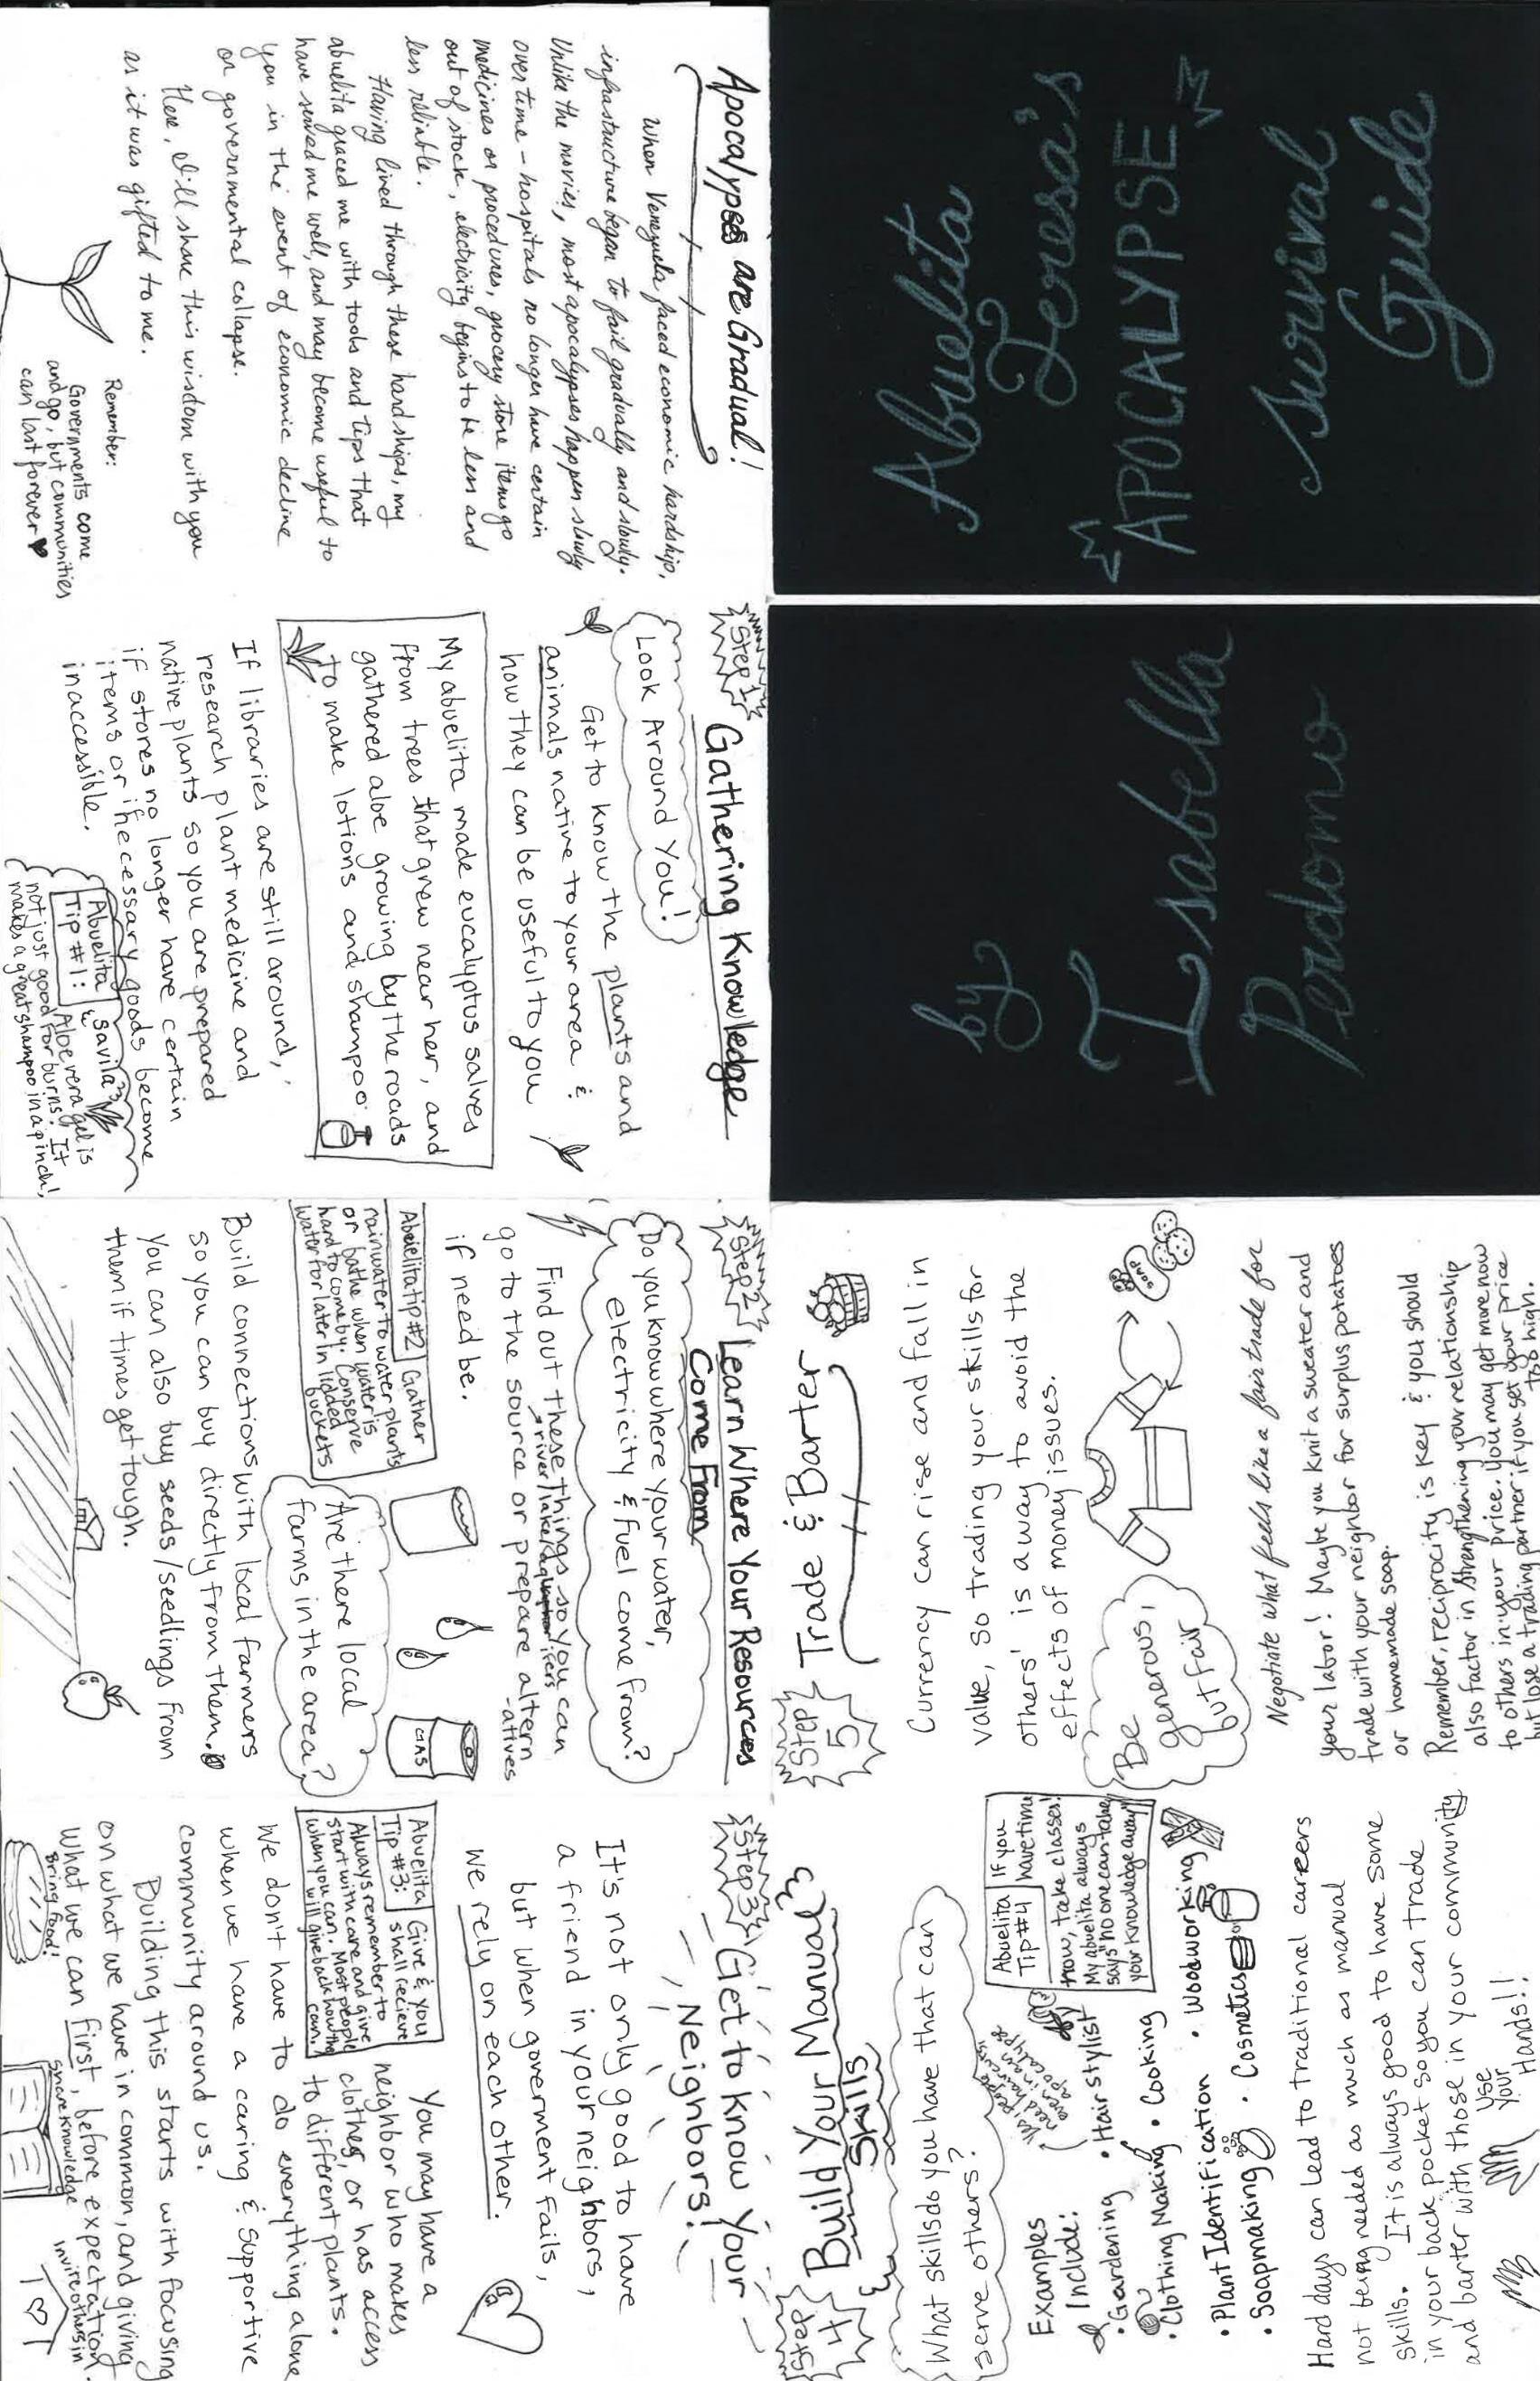 Abuelita
Teresa's
APOCALYPSE
Survival
Guide
Apocalypses are Gradual!
When Venezuela faced economic hardship,
infrastructure began to fail gradually and slowly.
Unlike the movies, most apocalypses happen slowly
over time – hospitals no longer have certain
medicines or procedures, grocery store items go
out of stock, electricity begins to be less and
less reliable.
Having lived through these hardships, my
abuelita graced me with tools and tips that
have served me well, and may become useful to
you in the event of economic decline
or governmental collapse.
Here, I'll share this wisdom with you
as it was gifted to me.
Remember:
Governments come
and go, but communities
can last forever ♥
Step 1
Gathering Knowledge
Look Around You!
Get to know the plants and
animals native to your area &
how they can be useful to you
My abuelita made eucalyptus salves
from trees that grew near her, and
gathered aloe growing by the roads
to make lotions and shampoo.
If libraries are still around,
research plant medicine and
native plants so you are prepared
if stores no longer have certain
items or if necessary goods become
inaccessible.
Abuelita
Tip #1:
Savila
Aloe vera gel is
not just good for burns! It
makes a great shampoo in a pinch!
Step 2
Learn Where Your Resources
Come From
Do you know where your water,
electricity & fuel come from?
Find out these things so you can
river/lake/aquifers
go to the source or prepare altern
-atives
if need be.
Abuelita tip #2
Gather
rainwater to water plants
or bathe when water is
hard to come by. Conserve
water for later in lidded
buckets
GAS
Are there local
farms in the area?
Build connections with local farmers
so you can buy directly from them.
You can also buy seeds/seedlings from
them if times get tough.
Step 3
Get to Know Your
Neighbors!
It's not only good to have
a friend in your neighbors,
but when goverment fails,
we rely on each other.
Abuelita
Tip #3:
Give & you
shall recieve
Always remember to
start with care and give
when you can. Most people
will give back how they
can.
You may have a
neighbor who makes
clothes, or has access
to different plants.
We don't have to do everything alone
when we have a caring & supportive
community around us.
Building this starts with focusing
on what we have in common, and giving
what we can first, before expectation.
Bring food!
share knowledge
Invite others in
Step
4
Build Your Manual
Skills
What skills do you have that can
serve others?
Abuelita
Tip #4
If you
have time
now, take classes!
My abuelita always
says "no one can take
your knowledge away"
Yes, people
need haircuts
even in an
apocalypse
Examples
Include:
• Gardening
• Hair stylist
• Clothing Making
• Cooking
• Woodworking
• Plant Identification
• Soapmaking
• Cosmetics
Hard days can lead to traditional careers
not being needed as much as manual
skills. It is always good to have some
in your back pocket so you can trade
and barter with those in your community
Use
Your
Hands!!
Step
5
Trade & Barter
Currency can rise and fall in
value, so trading your skills for
others' is a way to avoid the
effects of money issues.
SOAP
Be
generous,
but fair
Negotiate what feels like a fair trade for
your labor! Maybe you knit a sweater and
trade with your neighbor for surplus potatoes
or homemade soap.
Remember, reciprocity is key & you should
also factor in strengthening your relationship
to others in your price. You may get more now
but lose a trading partner if you set your price
too high.
by
Isabella
Perdomo